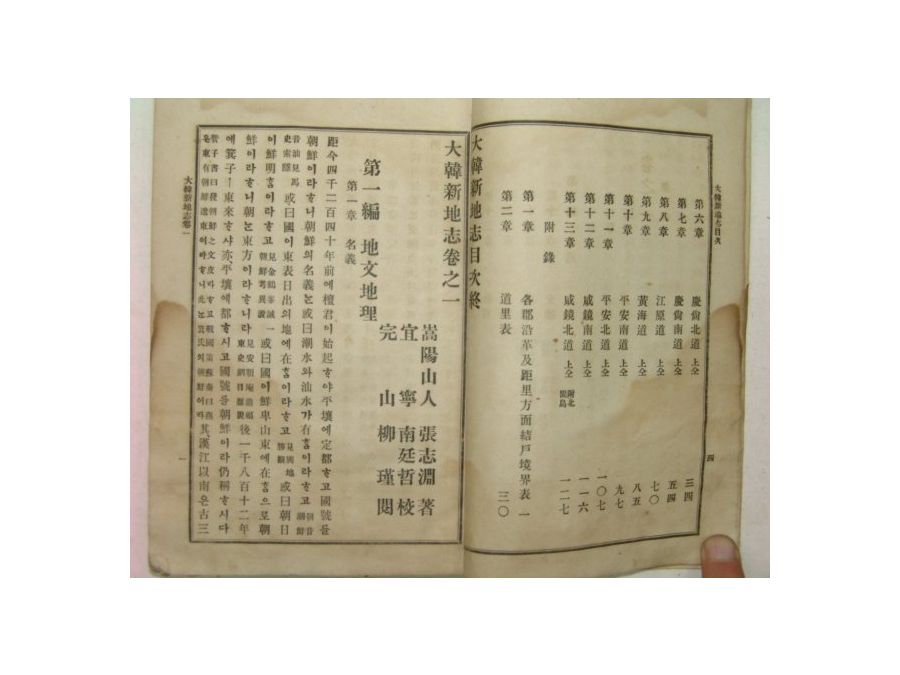 大韓新地志目次
第六章 慶尙北道 上仝 三四
第七章 慶尙南道 上仝 五四
第八章 江原道 上仝 七〇
第九章 黃海道 上仝 八五
第十章 平安南道 上仝 九七
第十一章 平安北道 上仝 一〇七
第十二章 咸鏡南道 上仝 一一六
第十三章 咸鏡北道 上仝 一二七
附錄
第一章 各郡沿革及距里方面結戶境界表 一
第二章 道里表 三〇
大韓新地志目次終
四
大韓新地志卷之一
嵩陽山人 張志淵 著
宜寧 南廷哲 校
完山 柳瑾 閱
第一編 地文地理
第一章 名義
距今四千二百四十年前에檀君이始起ᄒᆞ야平壤에定都ᄒᆞ고國號를
朝鮮이라ᄒᆞ니朝鮮의名義ᄂᆞᆫ或曰潮水와汕水가有ᄒᆞᆷ이라ᄒᆞ고
或曰國이東表日出의地에在ᄒᆞᆷ이라ᄒᆞ고 或曰朝日
이鮮明ᄒᆞᆷ이라ᄒᆞ고 或曰國이鮮卑山東에在ᄒᆞᆷ으로朝
鮮이라ᄒᆞ니朝ᄂᆞᆫ東方이라ᄒᆞ니라 後一千八十二年
에箕子ㅣ東來ᄒᆞ샤亦平壤에都ᄒᆞ시고國號를朝鮮이라仍稱ᄒᆞ시다
其漢江以南은古三
大韓新地志卷一
一